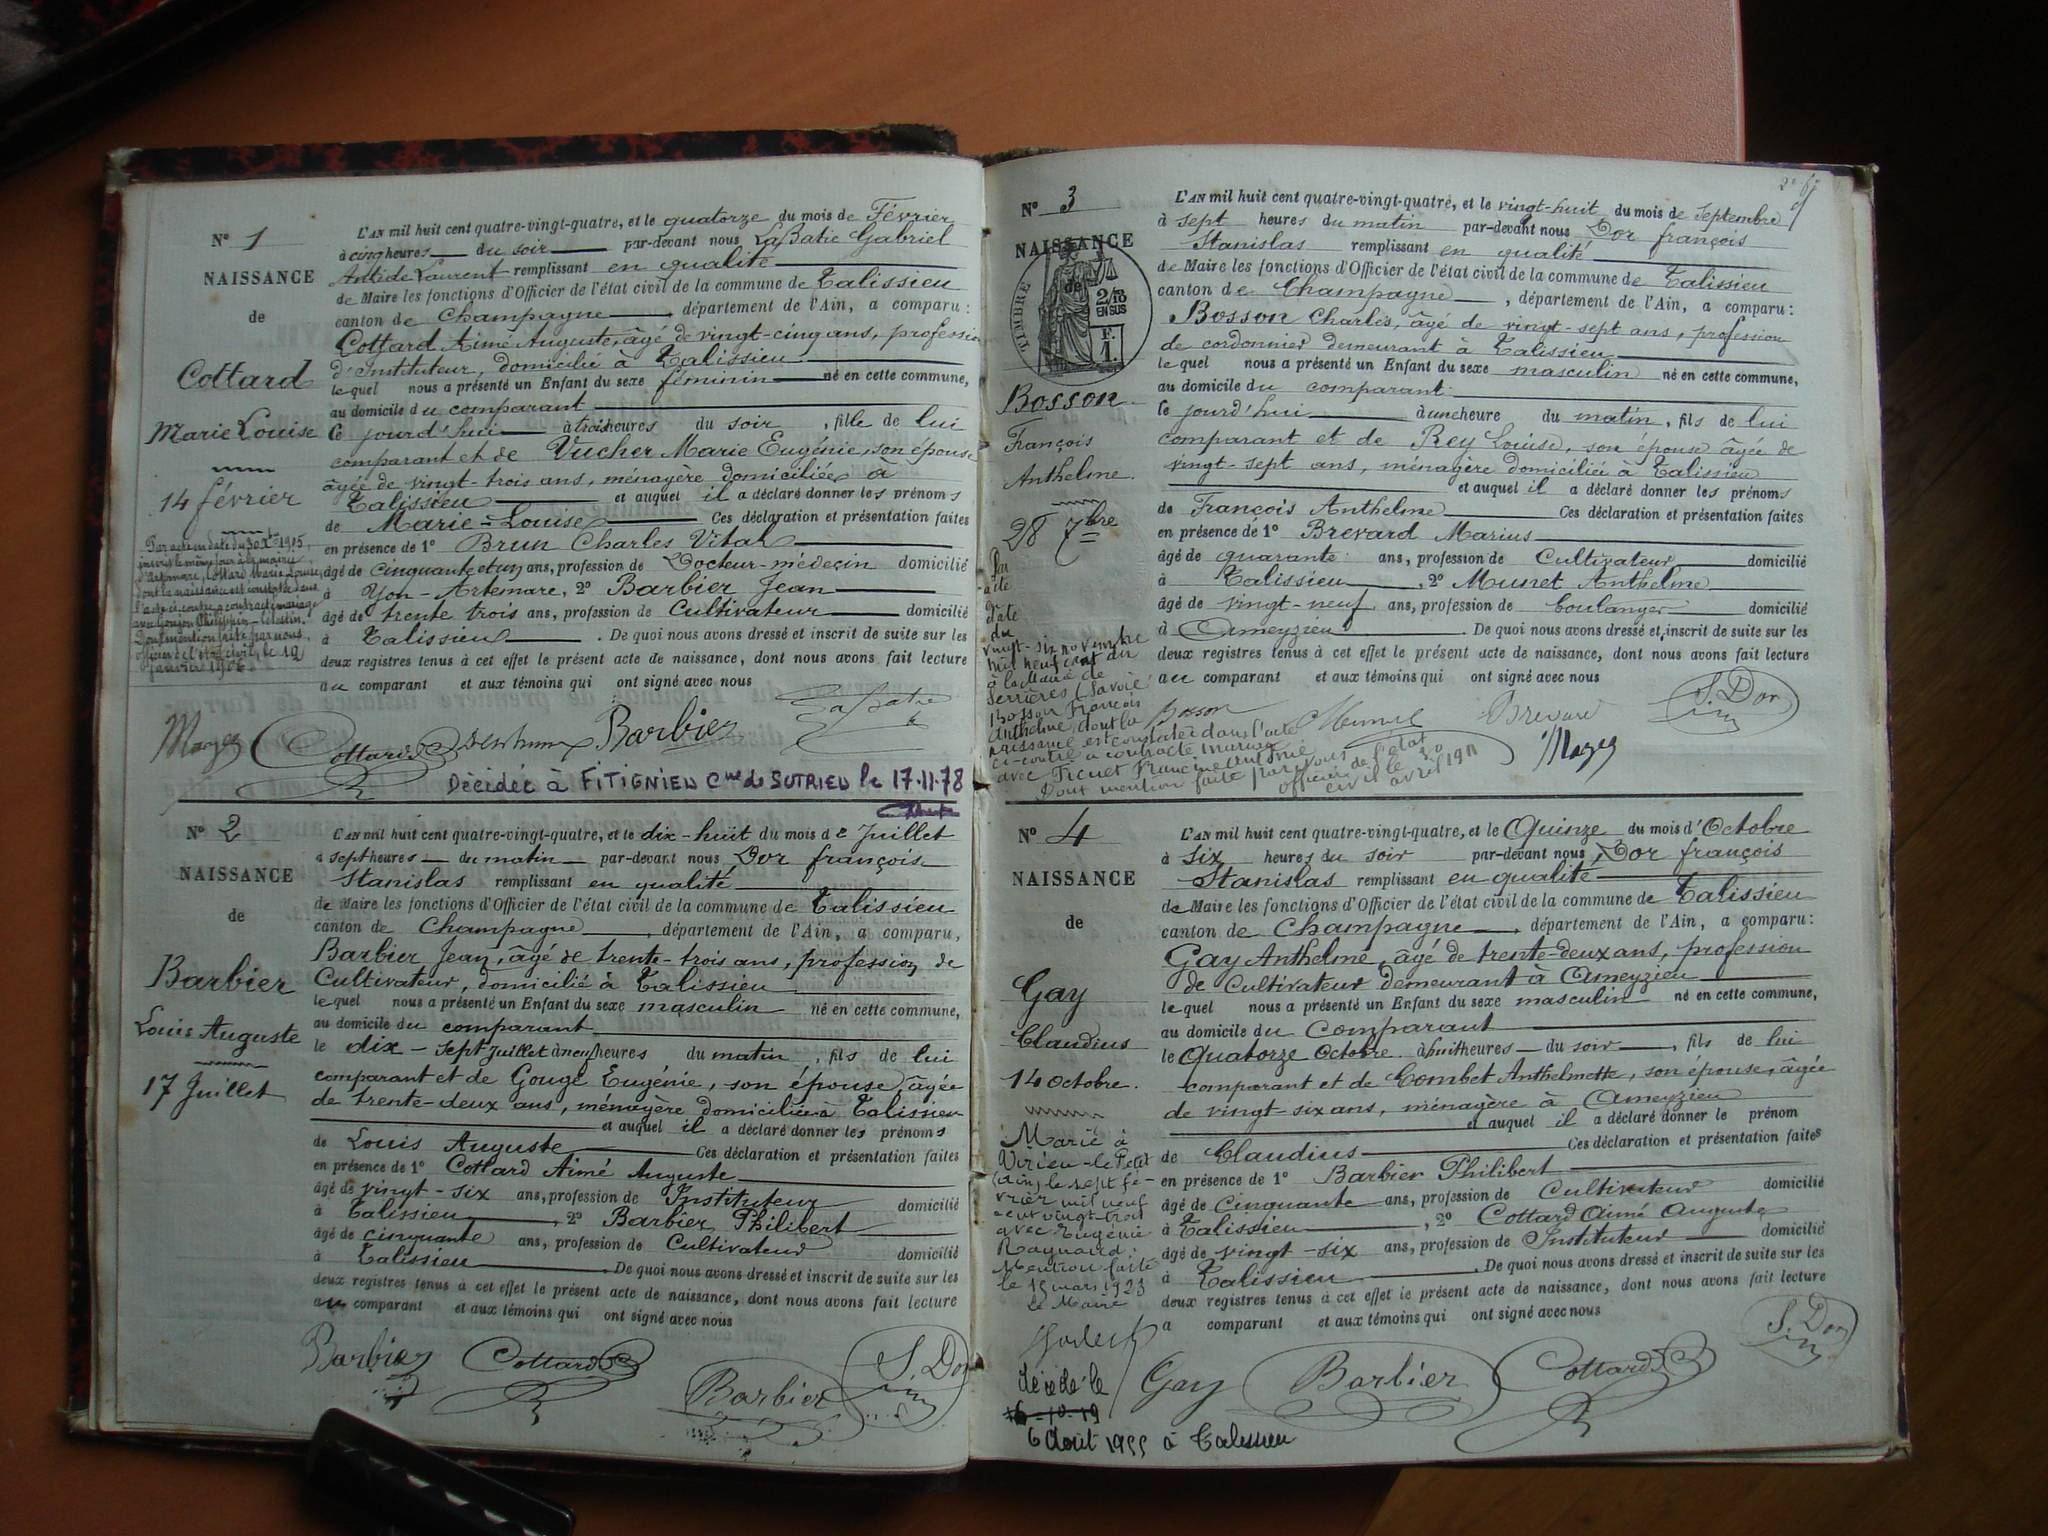 N° 1
NAISSANCE
de
Cottard
Marie Louise
14 février
Par acte en date du 30 Xbre 1905,
inscrit le même jour à la mairie
d'Artemare, Cottard Marie Louise,
dont la naissance est constatée dans
l'acte ci-contre a contracté mariage
avec Goujon Philippin-Célestin.
Dont mention faite par nous,
officier de l'état civil, le 12
janvier 1906.
L'AN mil huit cent quatre-vingt-quatre, et le quatorze du mois de Février
à cinq heures du soir par-devant nous LaBatie Gabriel
Antide Laurent remplissant en qualité
de Maire les fonctions d'Officier de l'état civil de la commune de Talissieu
canton de Champagne, département de l'Ain, a comparu:
Cottard Aimé Auguste, âgé de vingt-cinq ans, profession
d'Instituteur, domicilié à Talissieu
lequel nous a présenté un Enfant du sexe féminin né en cette commune,
au domicile du comparant
ce jourd'hui à trois heures du soir, fille de lui
comparant et de Vucher Marie Eugénie, son épouse
âgée de vingt-trois ans, ménagère domiciliée à
Talissieu et auquel il a déclaré donner les prénoms
de Marie-Louise Ces déclaration et présentation faites
en présence de 1° Brun Charles Vital
âgé de cinquante et un ans, profession de Docteur-médecin domicilié
à Yon-Artemare, 2° Barbier Jean
âgé de trente trois ans, profession de Cultivateur domicilié
à Talissieu. De quoi nous avons dressé et inscrit de suite sur les
deux registres tenus à cet effet le présent acte de naissance, dont nous avons fait lecture
au comparant et aux témoins qui ont signé avec nous
Cottard Barbier LaBatie
Décédée à FITIGNIEU Cne de SUTRIEU le 17.11.78
N° 2
NAISSANCE
de
Barbier
Louis Auguste
17 Juillet
L'AN mil huit cent quatre-vingt-quatre, et le dix-huit du mois de Juillet
à sept heures du matin par-devant nous Dor françois
Stanislas remplissant en qualité
de Maire les fonctions d'Officier de l'état civil de la commune de Talissieu
canton de Champagne, département de l'Ain, a comparu,
Barbier Jean, âgé de trente-trois ans, profession de
Cultivateur, domicilié à Talissieu
lequel nous a présenté un Enfant du sexe masculin né en cette commune,
au domicile du comparant
le dix-sept Juillet à neuf heures du matin, fils de lui
comparant et de Gouge Eugénie, son épouse, âgée
de trente-deux ans, ménagère domiciliée à Talissieu
et auquel il a déclaré donner les prénoms
de Louis Auguste Ces déclaration et présentation faites
en présence de 1° Cottard Aimé Auguste
âgé de vingt-six ans, profession de Instituteur domicilié
à Talissieu, 2° Barbier Philibert
âgé de cinquante ans, profession de Cultivateur domicilié
à Talissieu. De quoi nous avons dressé et inscrit de suite sur les
deux registres tenus à cet effet le présent acte de naissance, dont nous avons fait lecture
au comparant et aux témoins qui ont signé avec nous
Barbier Cottard Barbier S. Dor
N° 3
NAISSANCE
de
TIMBRE
2/10
EN SUS
F.
1.
Bosson
François
Anthelme
28 7bre
Par
acte
date
du
vingt-six novembre
mil neuf cent dix
à la Mairie de
Serrières (Savoie
Bosson François
Anthelme dont la
naissance est constatée dans l'acte
ci-contre a contracté mariage
avec
Dont mention faite par nous
officier de l'état
civil le 30
avril 1911
L'AN mil huit cent quatre-vingt-quatre, et le vingt-huit du mois de Septembre
à sept heures du matin par-devant nous Dor françois
Stanislas remplissant en qualité
de Maire les fonctions d'Officier de l'état civil de la commune de Talissieu
canton de Champagne, département de l'Ain, a comparu:
Bosson Charles, âgé de vingt-sept ans, profession
de cordonnier demeurant à Talissieu
lequel nous a présenté un Enfant du sexe masculin né en cette commune,
au domicile du comparant
ce jourd'hui à une heure du matin, fils de lui
comparant et de Rey Louise, son épouse âgée de
vingt-sept ans, ménagère domiciliée à Talissieu
et auquel il a déclaré donner les prénoms
de François Anthelme Ces déclaration et présentation faites
en présence de 1° Brevard Marius
âgé de quarante ans, profession de Cultivateur domicilié
à Talissieu, 2° Munet Anthelme
âgé de vingt-neuf ans, profession de boulanger domicilié
à Ameyzieu. De quoi nous avons dressé et inscrit de suite sur les
deux registres tenus à cet effet le présent acte de naissance, dont nous avons fait lecture
au comparant et aux témoins qui ont signé avec nous
Bosson Munet Brevard S. Dor
N° 4
NAISSANCE
de
Gay
Claudius
14 octobre.
Marié à
Virieu-le-Petit
(Ain) le sept fé-
vrier mil neuf
cent vingt-trois
avec Eugénie
Raynaud.
Mention faite
le 15 mars 1923
Le Maire
décédé le
6 Août 1955 à Talissieu
L'AN mil huit cent quatre-vingt-quatre, et le Quinze du mois d'Octobre
à six heures du soir par-devant nous Dor françois
Stanislas remplissant en qualité
de Maire les fonctions d'Officier de l'état civil de la commune de Talissieu
canton de Champagne, département de l'Ain, a comparu:
Gay Anthelme, âgé de trente-deux ans, profession
de Cultivateur demeurant à Ameyzieu
lequel nous a présenté un Enfant du sexe masculin né en cette commune,
au domicile du Comparant
le Quatorze Octobre à huit heures du soir, fils de lui
comparant et de Combet Anthelmette, son épouse, âgée
de vingt-six ans, ménagère à Ameyzieu
et auquel il a déclaré donner le prénom
de Claudius Ces déclaration et présentation faites
en présence de 1° Barbier Philibert
âgé de Cinquante ans, profession de Cultivateur domicilié
à Talissieu, 2° Cottard Aimé Auguste
âgé de vingt-six ans, profession de Instituteur domicilié
à Talissieu. De quoi nous avons dressé et inscrit de suite sur les
deux registres tenus à cet effet le présent acte de naissance, dont nous avons fait lecture
a comparant et aux témoins qui ont signé avec nous
Gay Barbier Cottard S. Dor